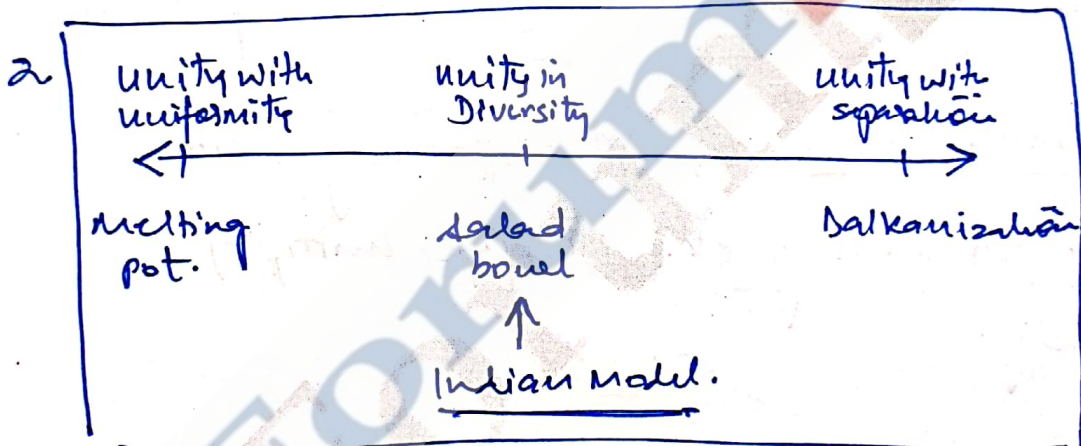 2
unity with
uniformity
unity in
Diversity
unity with
separation
Melting
pot.
salad
bowl
Balkanization
Indian Model.
Forum